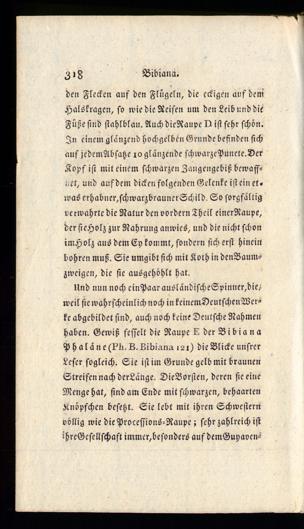 318 Bibiana.
den Flecken auf den Flügeln, die eckigen auf dem
Halskragen, so wie die Reifen um den Leib und die
Füße sind stahlblau. Auch die Raupe D ist sehr schön.
In einem glänzend hochgelben Grunde befinden sich
auf jedem Absatze 10 glänzende schwarze Puncte. Der
Kopf ist mit einem schwarzen Zangengebiß bewaff-
net, und auf dem dicken folgenden Gelenke ist ein et-
was erhabner, schwarzbrauner Schild. So sorgfältig
verwahrte die Natur den vordern Theil einer Raupe,
der sie Holz zur Nahrung anwies, und die nicht schon
im Holz aus dem Ey kommt, sondern sich erst hinein
bohren muß. Sie umgibt sich mit Koth in den Baum-
zweigen, die sie ausgehöhlt hat.
Und nun noch ein Paar ausländische Spinner, die,
weil sie wahrscheinlich noch in keinem Deutschen Wer-
ke abgebildet sind, auch noch keine Deutsche Nahmen
haben. Gewiß fesselt die Raupe E der Bibiana
Phaläne (Ph. B. Bibiana 121) die Blicke unsrer
Leser sogleich. Sie ist im Grunde gelb mit braunen
Streifen nach der Länge. Die Borsten, deren sie eine
Menge hat, sind am Ende mit schwarzen, behaarten
Knöpfchen besetzt. Sie lebt mit ihren Schwestern
völlig wie die Processions-Raupe; sehr zahlreich ist
ihre Gesellschaft immer, besonders auf dem Guyaven-